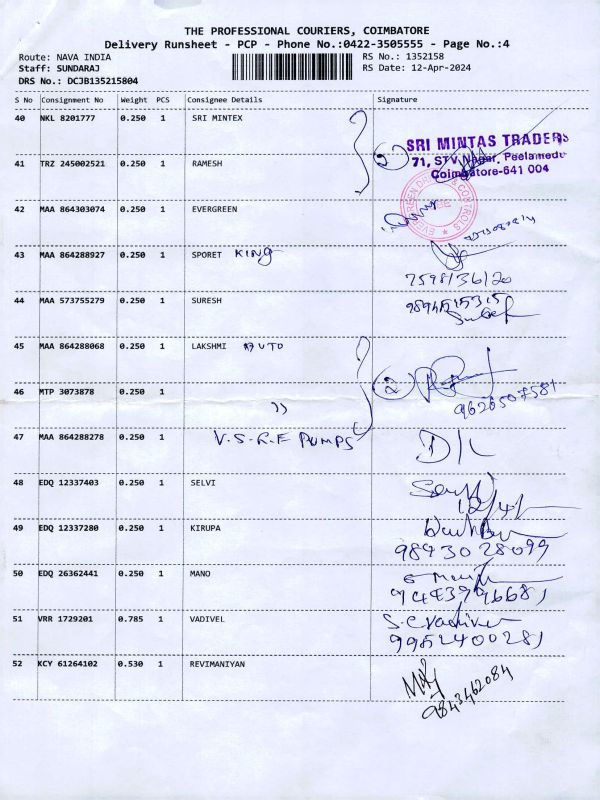 THE PROFESSIONAL COURIERS, COIMBATORE
Delivery Runsheet - PCP - Phone No.:0422-3505555 - Page No.:4
Route: NAVA INDIA RS No.: 1352158
Staff: SUNDARAJ RS Date: 12-Apr-2024
DRS No.: DCJB135215804
S No Consignment No Weight PCS Consignee Details Signature
40 NKL 8201777 0.250 1 SRI MINTEX
SRI MINTAS TRADERS
71, STV Nagar, Peelamedu
Coimbatore-641 004
41 TRZ 245002521 0.250 1 RAMESH
2
42 MAA 864303074 0.250 1 EVERGREEN
43 MAA 864288927 0.250 1 SPORET KING
7598136120
44 MAA 573755279 0.250 1 SURESH
45 MAA 864288068 0.250 1 LAKSHMI AUTO
46 MTP 3073878 0.250 1 ,,
2
9626507581
47 MAA 864288278 0.250 1 V.S.R.F PUMPS
D/C
48 EDQ 12337403 0.250 1 SELVI
12/4/
49 EDQ 12337280 0.250 1 KIRUPA
9893028099
50 EDQ 26362441 0.250 1 MANO
51 VRR 1729201 0.785 1 VADIVEL
S.C.Vadivel
9952400281
52 KCY 61264102 0.530 1 REVIMANIYAN
9843462084